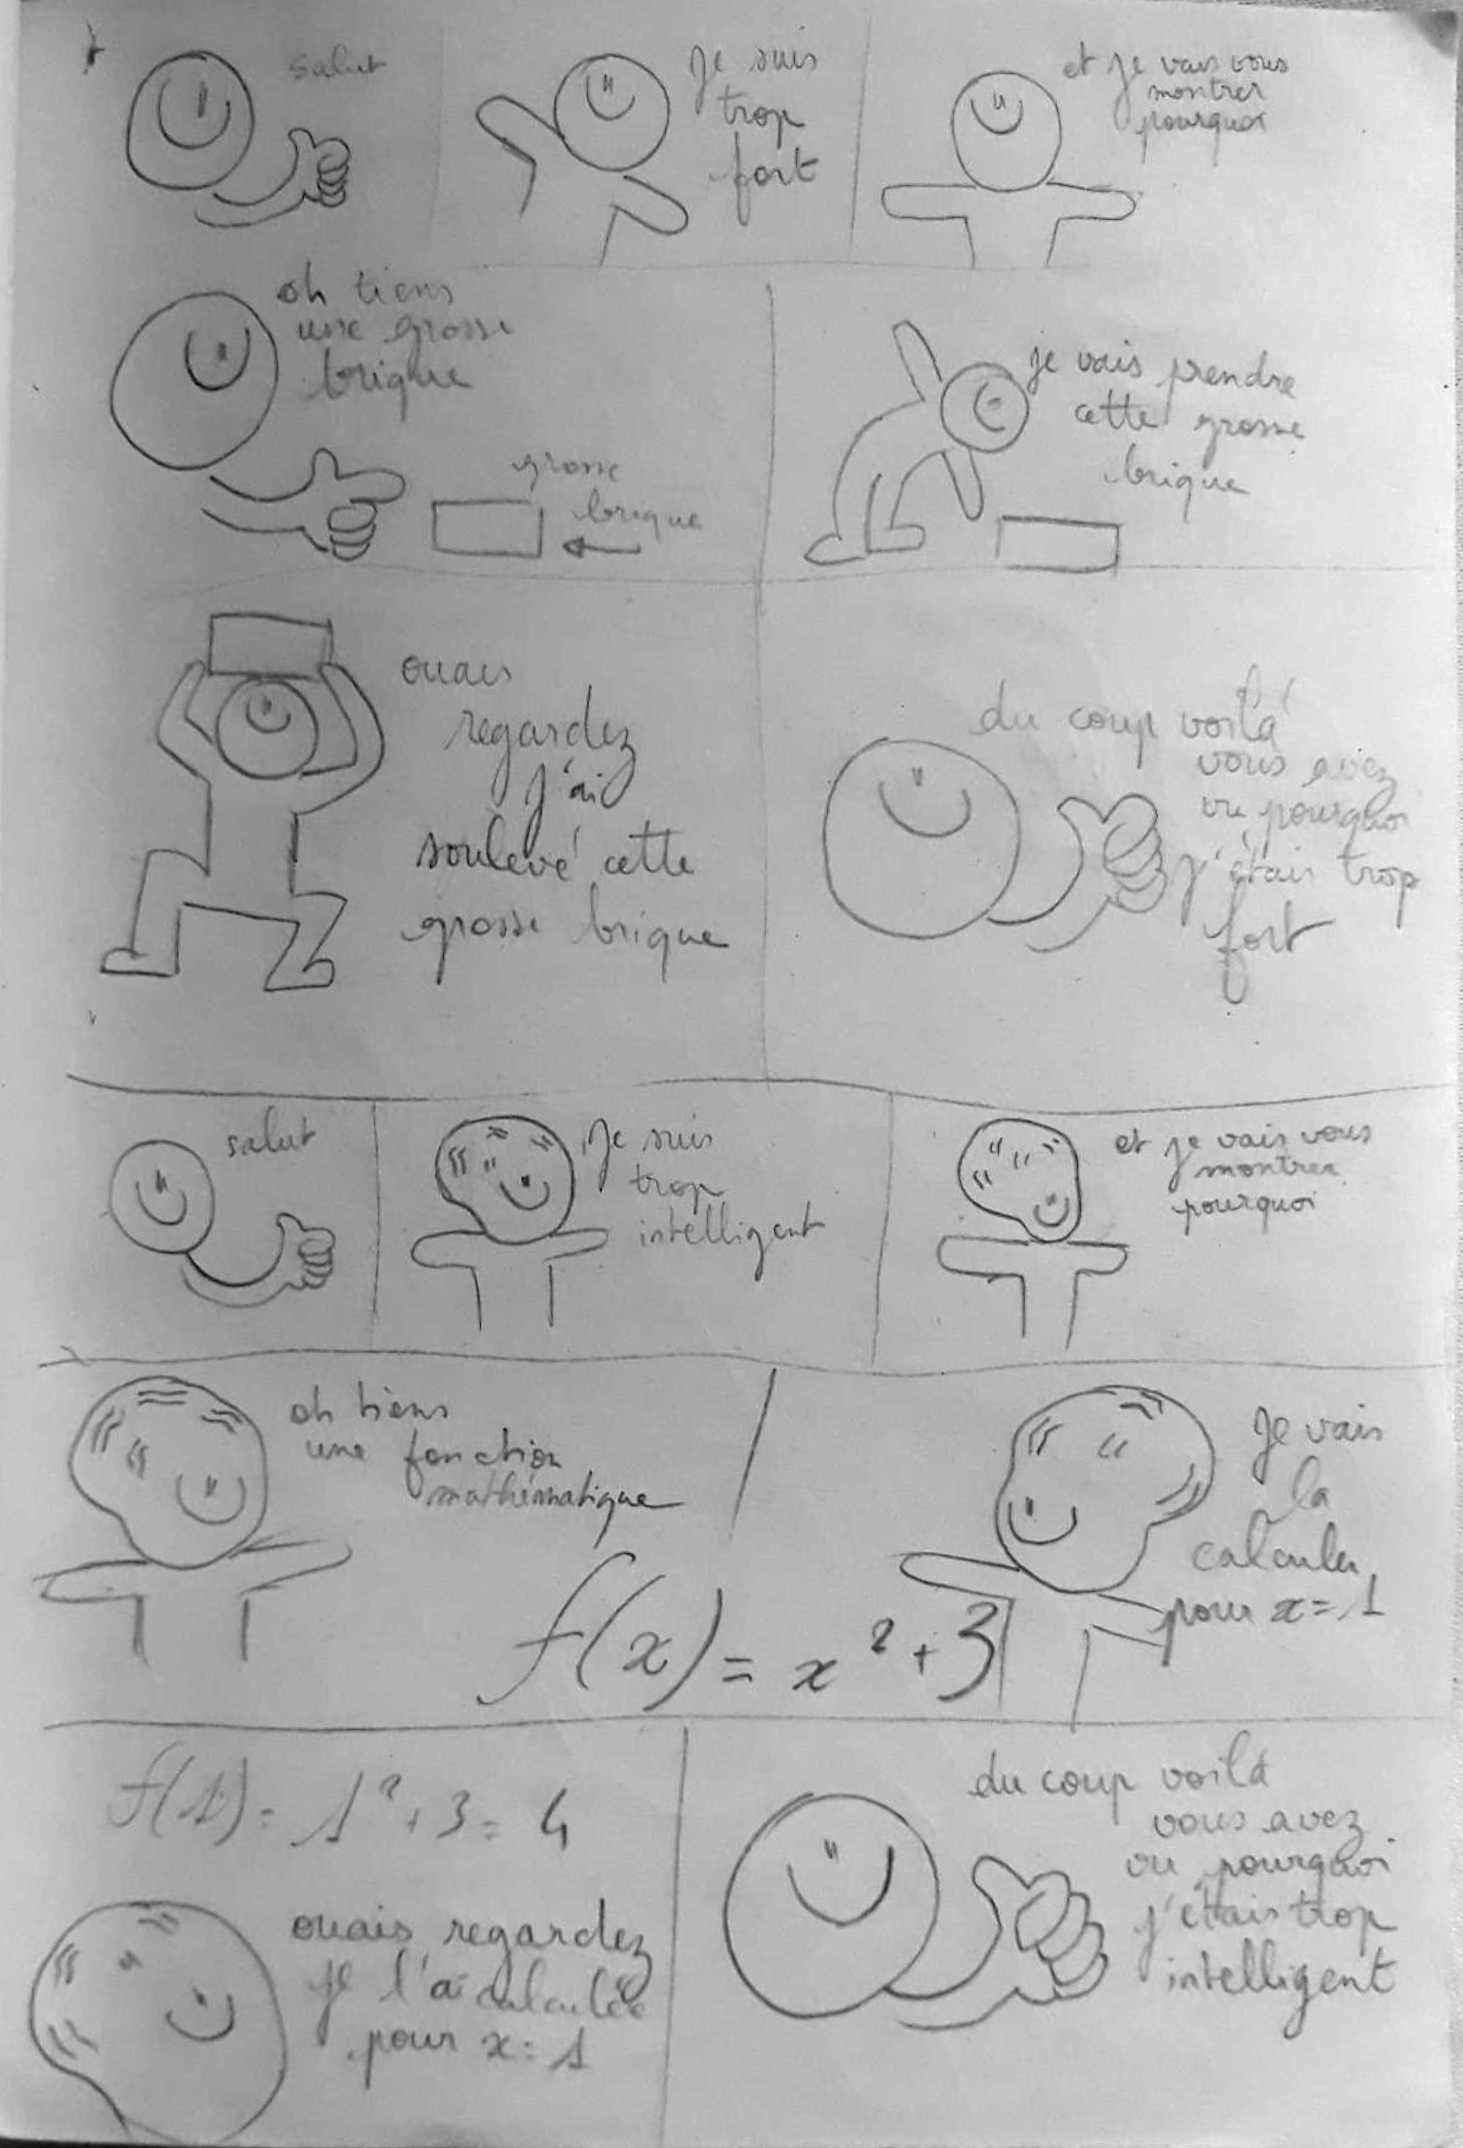 salut
je suis
trop
fort
et je vais vous
montrer
pourquoi
oh tiens
une grosse
brique
grosse
brique
je vais prendre
cette grosse
brique
ouais
regardez
j'ai
soulevé cette
grosse brique
du coup voilà
vous avez
vu pourquoi
j'étais trop
fort
salut
je suis
trop
intelligent
et je vais vous
montrer
pourquoi
oh tiens
une fonction
mathématique
f(x) = x² + 3
je vais
la
calculer
pour x = 1
f(1) = 1² + 3 = 4
ouais regardez
je l'ai calculée
pour x = 1
du coup voilà
vous avez
vu pourquoi
j'étais trop
intelligent